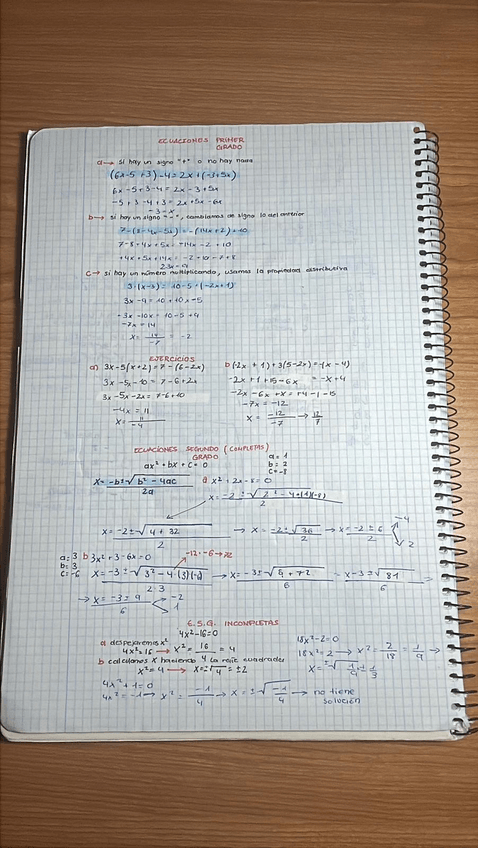 ECUACIONES PRIMER
GRADO
a → si hay un signo "+" o no hay nada
(6x-5+3)-4=2x+(-3+5x)
6x-5+3-4=2x-3+5x
-5+3-4+3=2x+5x-6x
-3=x
b → si hay un signo "-", cambiamos de signo lo del anterior
7-(8-4x-5x)=-(14x+2)+10
7-8+4x+5x=-14x-2+10
+4x+5x+14x=-2+10-7+8
23x=9
c → si hay un número multiplicando, usamos la propiedad distributiva
3·(x-3)=10-5·(-2x+1)
3x-9=10+10x-5
+3x-10x=10-5+9
-7x=14
x= 14/-7 = -2
EJERCICIOS
a) 3x-5(x+2)=7-(6-2x)
3x-5x-10=7-6+2x
3x-5x-2x=7-6+10
-4x=11
x= 11/-4
b (-2x+1)+3(5-2x)=-(x-4)
-2x+1+15-6x=-x+4
-2x-6x+x=+4-1-15
-7x=-12
x= -12/-7 → 12/7
ECUACIONES SEGUNDO GRADO (COMPLETAS)
ax²+bx+c=0
x= -b±√b²-4ac / 2a
a x²+2x-8=0
a=1
b=2
c=-8
x= -2±√2²-4·(1)(-8) / 2
x= -2±√4+32 / 2 → x= -2±√36 / 2 → x= -2±6 / 2
-4
2
a=3
b=3
c=-6
b 3x²+3-6x=0
-12·-6→72
x= -3±√3²-4·(3)(-6) / 2·3 → x= -3±√9+72 / 6 = x= -3±√81 / 6 =
→ x= -3±9 / 6
-2
1
E.S.G. INCOMPLETAS
4x²-16=0
a despejaremos x²
4x²=16 → x²= 16/4 = 4
b calculamos x haciendo la raíz cuadrada
x²=4 → x=±√4=±2
18x²-2=0
18x²=2 → x²= 2/18 = 1/9 →
x=±√1/9 ± 1/3
4x²+1=0
4x²=-1 → x²= -1/4 → x=±√-1/4 → no tiene solución